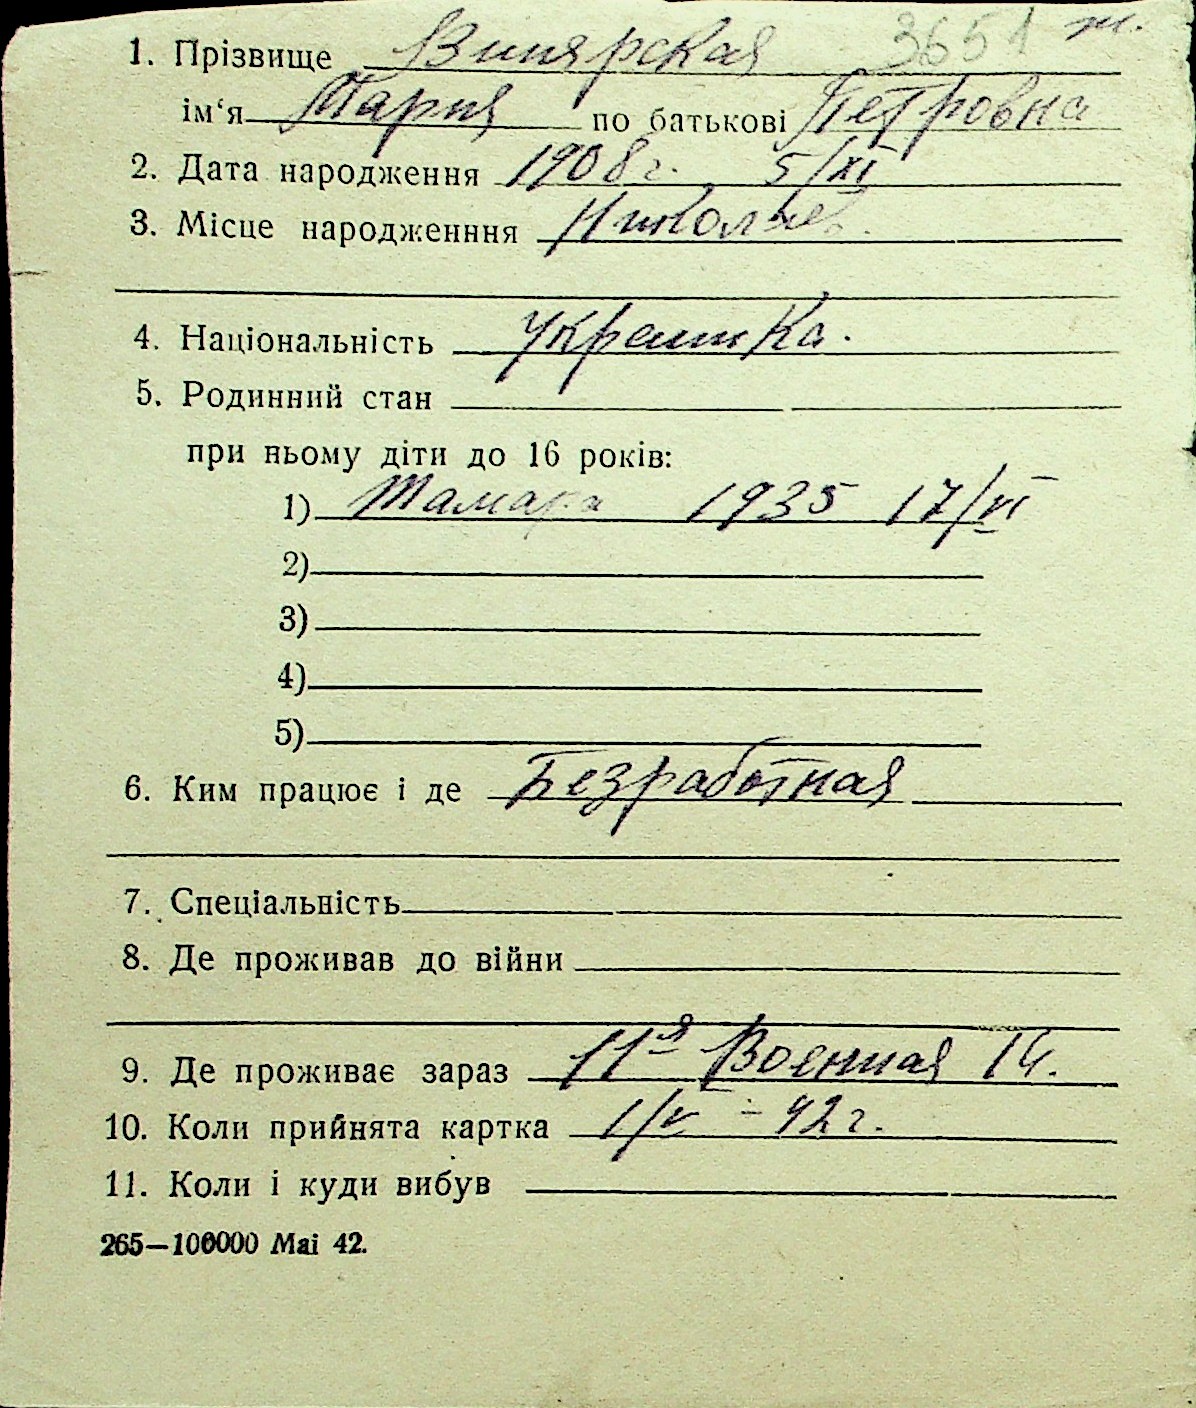 3651 ж.
1. Прізвище Винярская
ім‘я Мария по батькові Петровна
2. Дата народження 1908 г. 5/XI
3. Місце народженння Николаев.
4. Національність Украинка.
5. Родинний стан
при ньому діти до 16 років:
1) Тамара 1935 17/VI
2)
3)
4)
5)
6. Ким працює і де Безработная
7. Спеціальність
8. Де проживав до війни
9. Де проживає зараз 11я Военная 14.
10. Коли прийнята картка 1/V - 42 г.
11. Коли і куди вибув
265—100000 Mai 42.